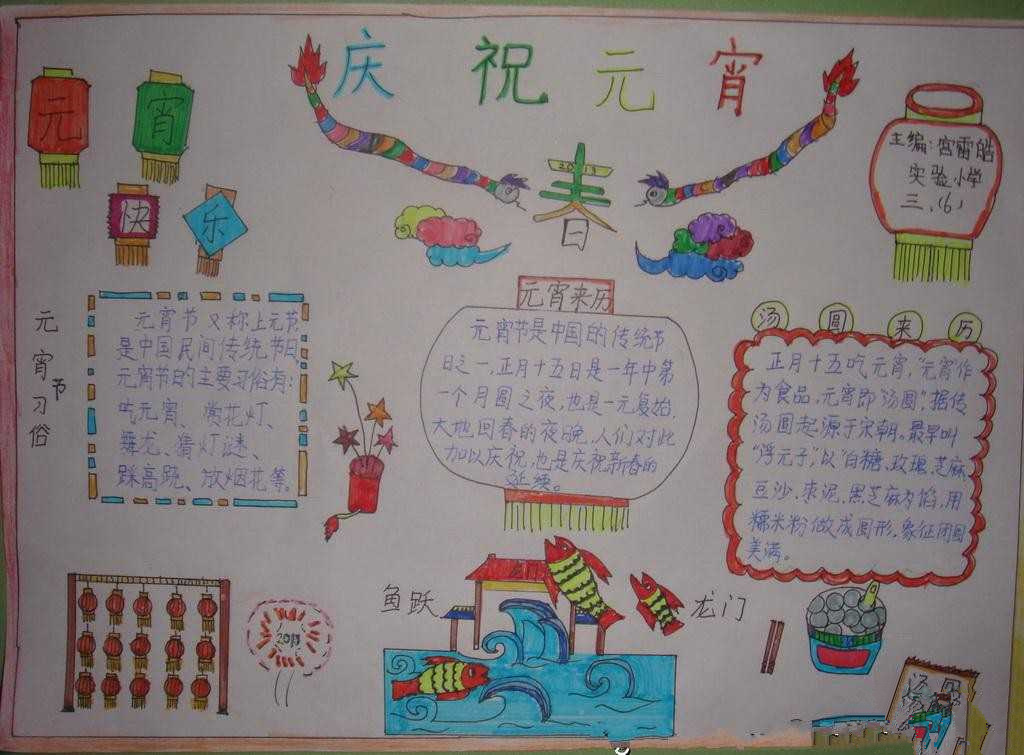 庆祝元宵
元
宵
快
乐
2013
春
主编:宫雷皓
实验小学
三.(6)
元宵节习俗
元宵节又称上元节,
是中国民间传统节日
元宵节的主要习俗有:
吃元宵、赏花灯、
舞龙、猜灯谜、
踩高跷、放烟花等。
元宵来历
元宵节是中国的传统节
日之一,正月十五日是一年中第
一个月圆之夜,也是一元复始,
大地回春的夜晚,人们对此
加以庆祝,也是庆祝新春的
延续。
汤圆来历
正月十五吃元宵,“元宵作
为食品,元宵即“汤圆”,据传
汤圆起源于宋朝。最早叫
“浮元子”以“白糖、玫瑰、芝麻
豆沙、枣泥、黑芝麻为馅,用
糯米粉做成圆形,象征团圆
美满。
2013
鱼跃
龙门
汤圆